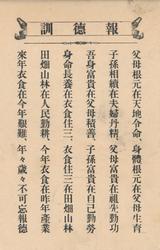 報德訓
父母根元在天地令命 身體根元在父母生育
子孫相續在夫婦丹精 父母富貴在祖先勤功
吾身富貴在父母積善 子孫富貴在自己勤勞
身命長養在衣食住三 衣食住三在田畑山林
田畑山林在人民勤耕 今年衣食在昨年產業
來年衣食在今年艱難 年々歲々不可忘報德